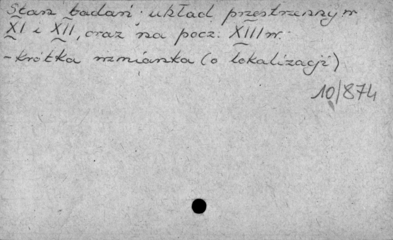 Stan badań: układ przestrzenny w
XI i XII, oraz na pocz. XIII w.
- krótka wzmianka (o lokalizacji)
10/874